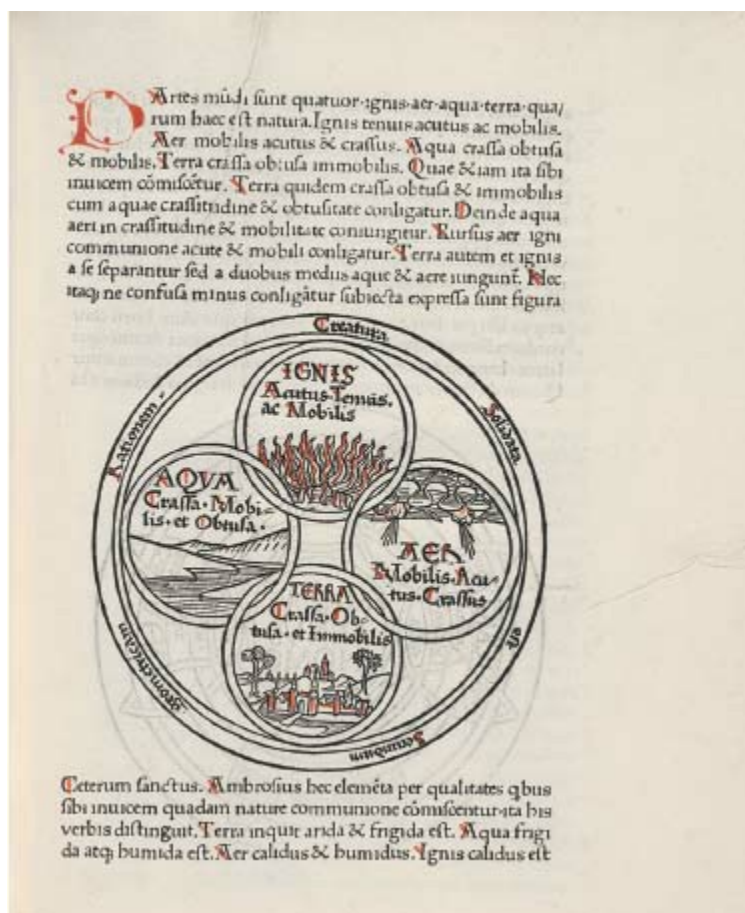 PArtes mūdi sunt quatuor·ignis·aer·aqua·terra·qua/
rum haec est natura. Ignis tenuis acutus ac mobilis.
Aer mobilis acutus & crassus. Aqua crassa obtusa
& mobilis. Terra crassa obtusa immobilis. Quae &iam ita sibi
inuicem cōmiscētur. Terra quidem crassa obtusa & immobilis
cum aquae crassitudine & obtusitate conligatur. Deinde aqua
aeri in crassitudine & mobilitate coniungitur. Rursus aer igni
communione acute & mobili conligatur. Terra autem et ignis
a se separantur sed a duobus mediis aque & aere iungunt̄. Hec
itaq; ne confusa minus conligātur subiecta expressa sunt figura
Creatura
Solidata
est
Secundum
geometricam
Rationem
IGNIS
Acutus·Tenuis·
ac Mobilis
AQVA
Crassa·Mobi=
lis·et Obtusa·
AER
Mobilis·Acu=
tus·Crassus
TERRA
Crassa·Ob=
tusa·et Immobilis
Ceterum sanctus. Ambrosius hec elemēta per qualitates qbus
sibi inuicem quadam nature communione cōmiscentur·ita his
verbis distinguit. Terra inquit arida & frigida est. Aqua frigi
da atq; humida est. Aer calidus & humidus. Ignis calidus est